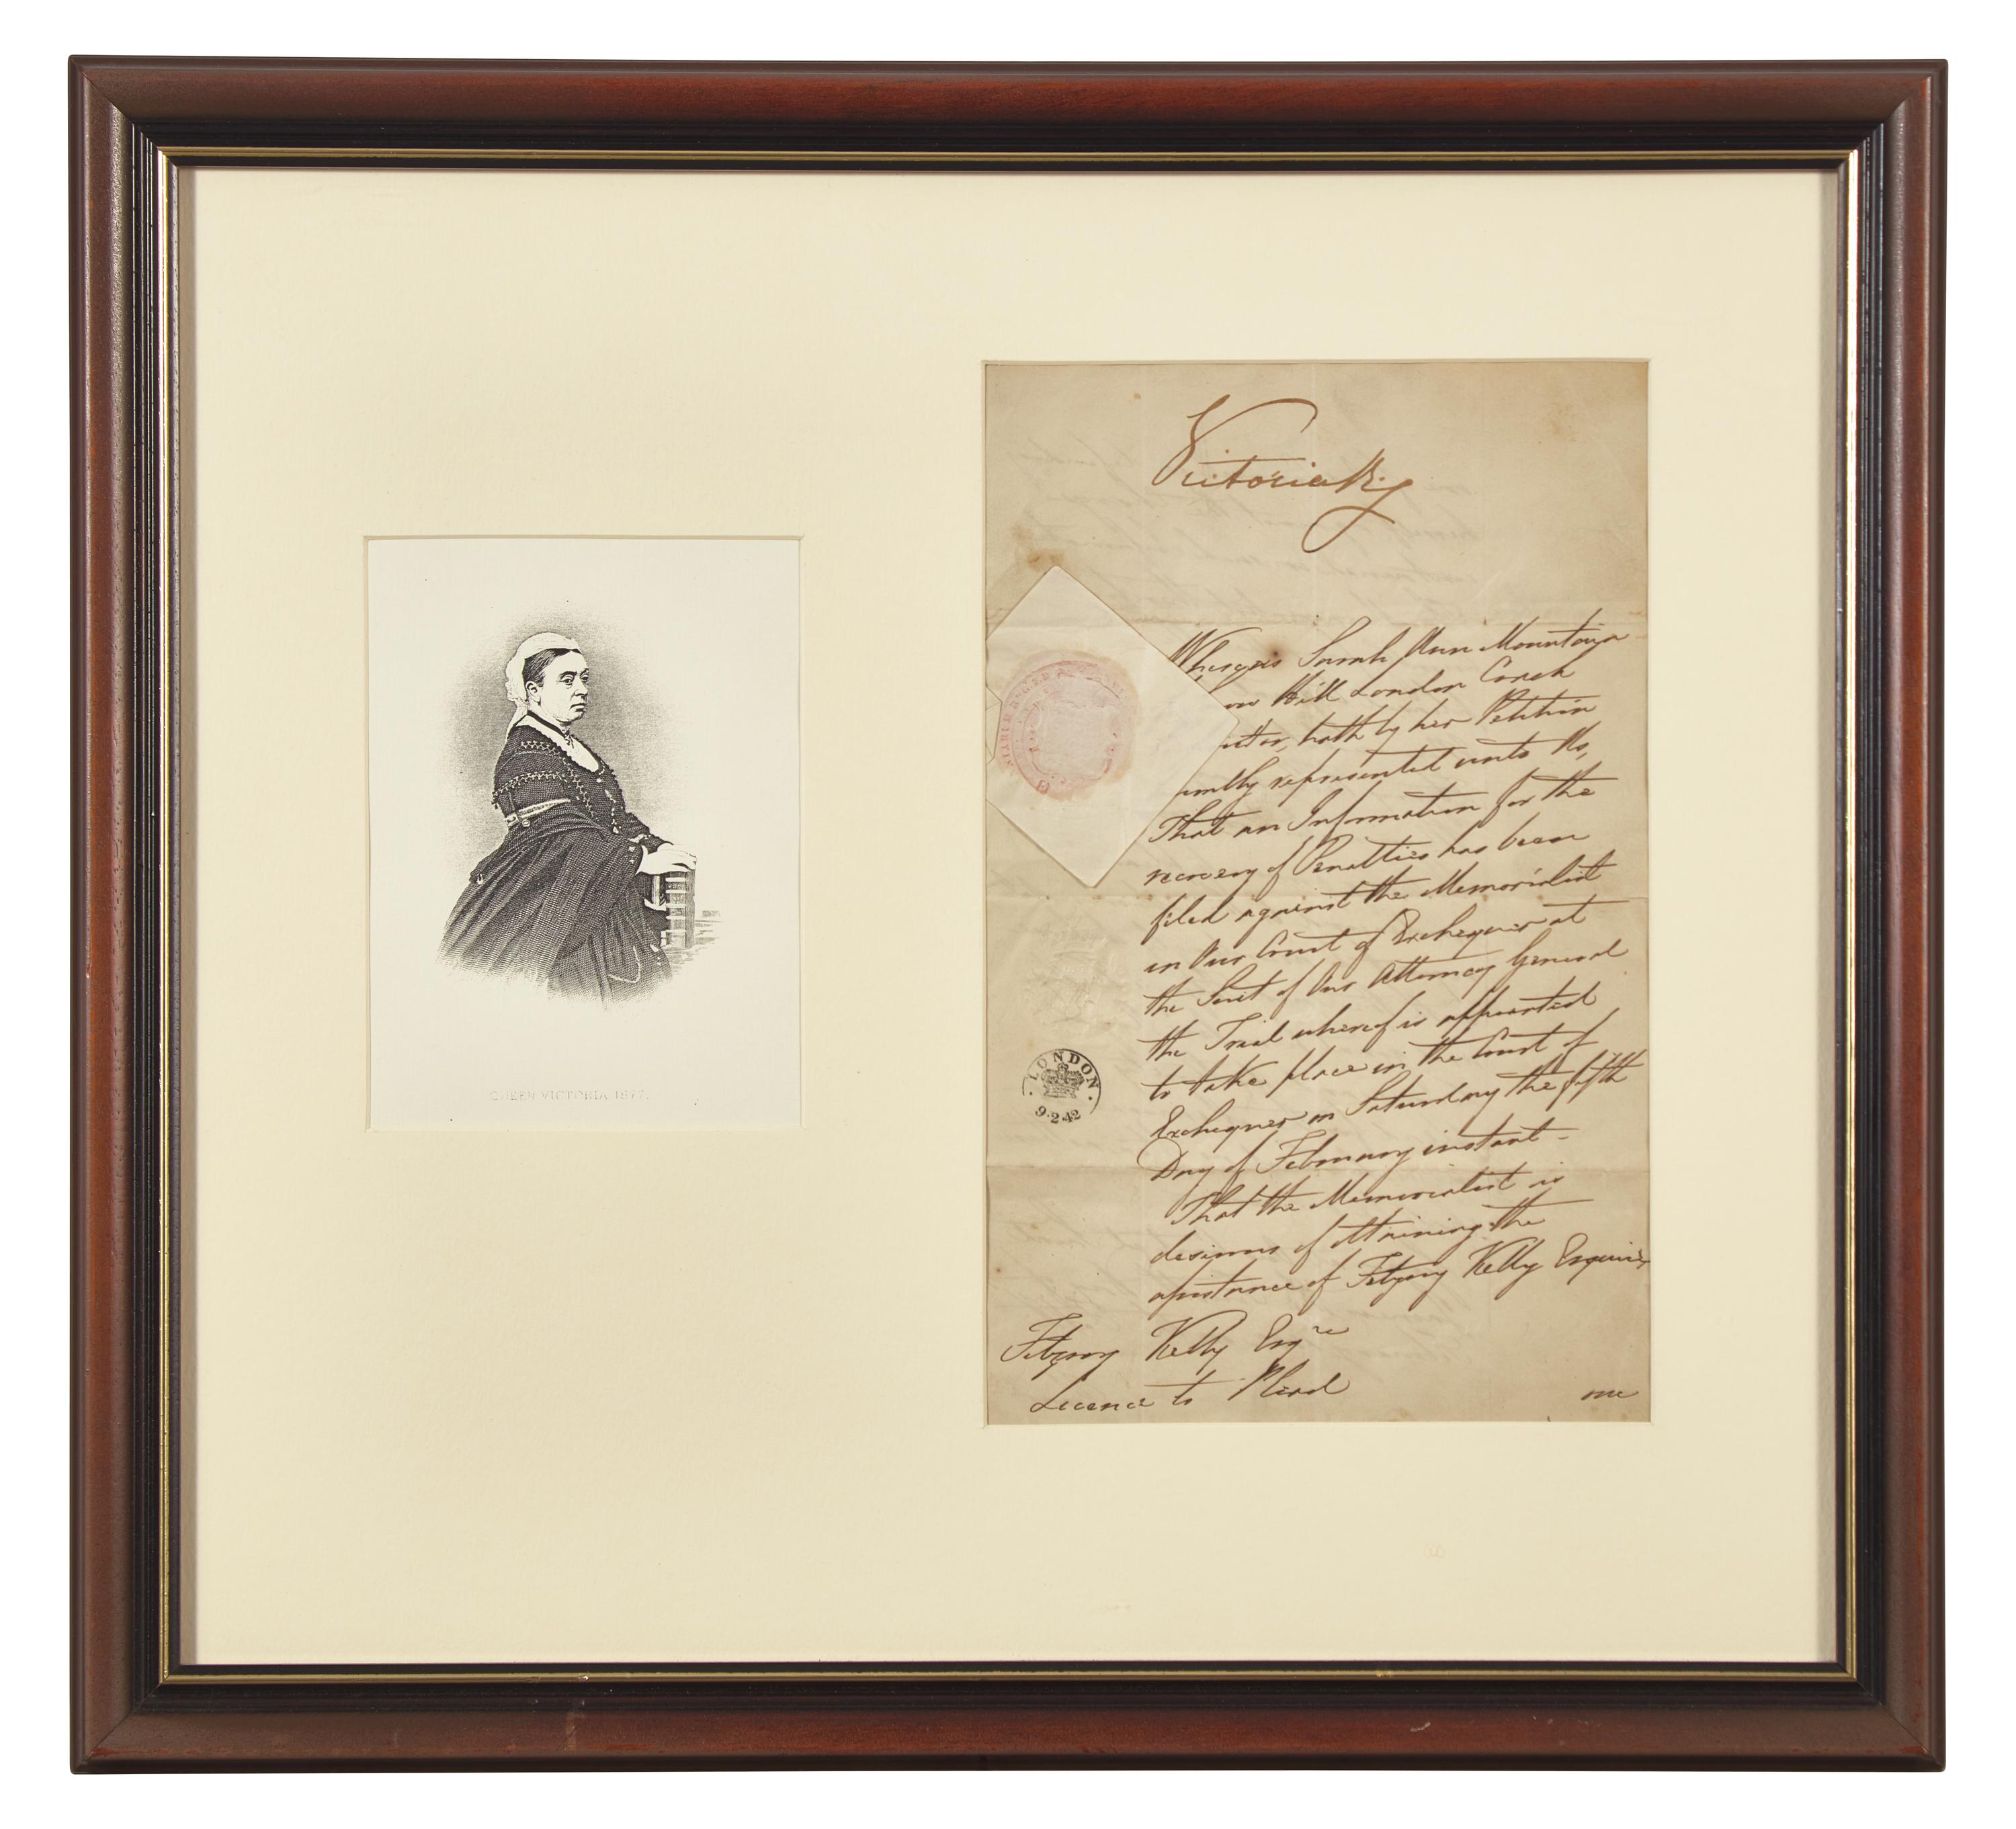 QUEEN VICTORIA 1877.
Victoria R
Whereas Sarah Ann Mountain
Hill London Coach
hath by her Petition
umbly represented unto Us,
That an Information for the
recovery of Penalties has been
filed against the Memorialist
in Our Court of Exchequer at
the Suit of Our Attorney General
the Trial whereof is appointed
to take place in the Court of
Exchequer on Saturday the fifth
Day of February instant -
That the Memorialist is
desirous of obtaining the
assistance of Fitzroy Kelly Esquire
Fitzroy Kelly Esqre
Licence to Plead
one
LONDON
9·2·42